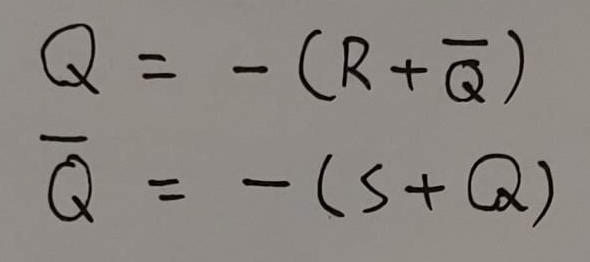 Q = - (R + Q̅)
Q̅ = - (S + Q)